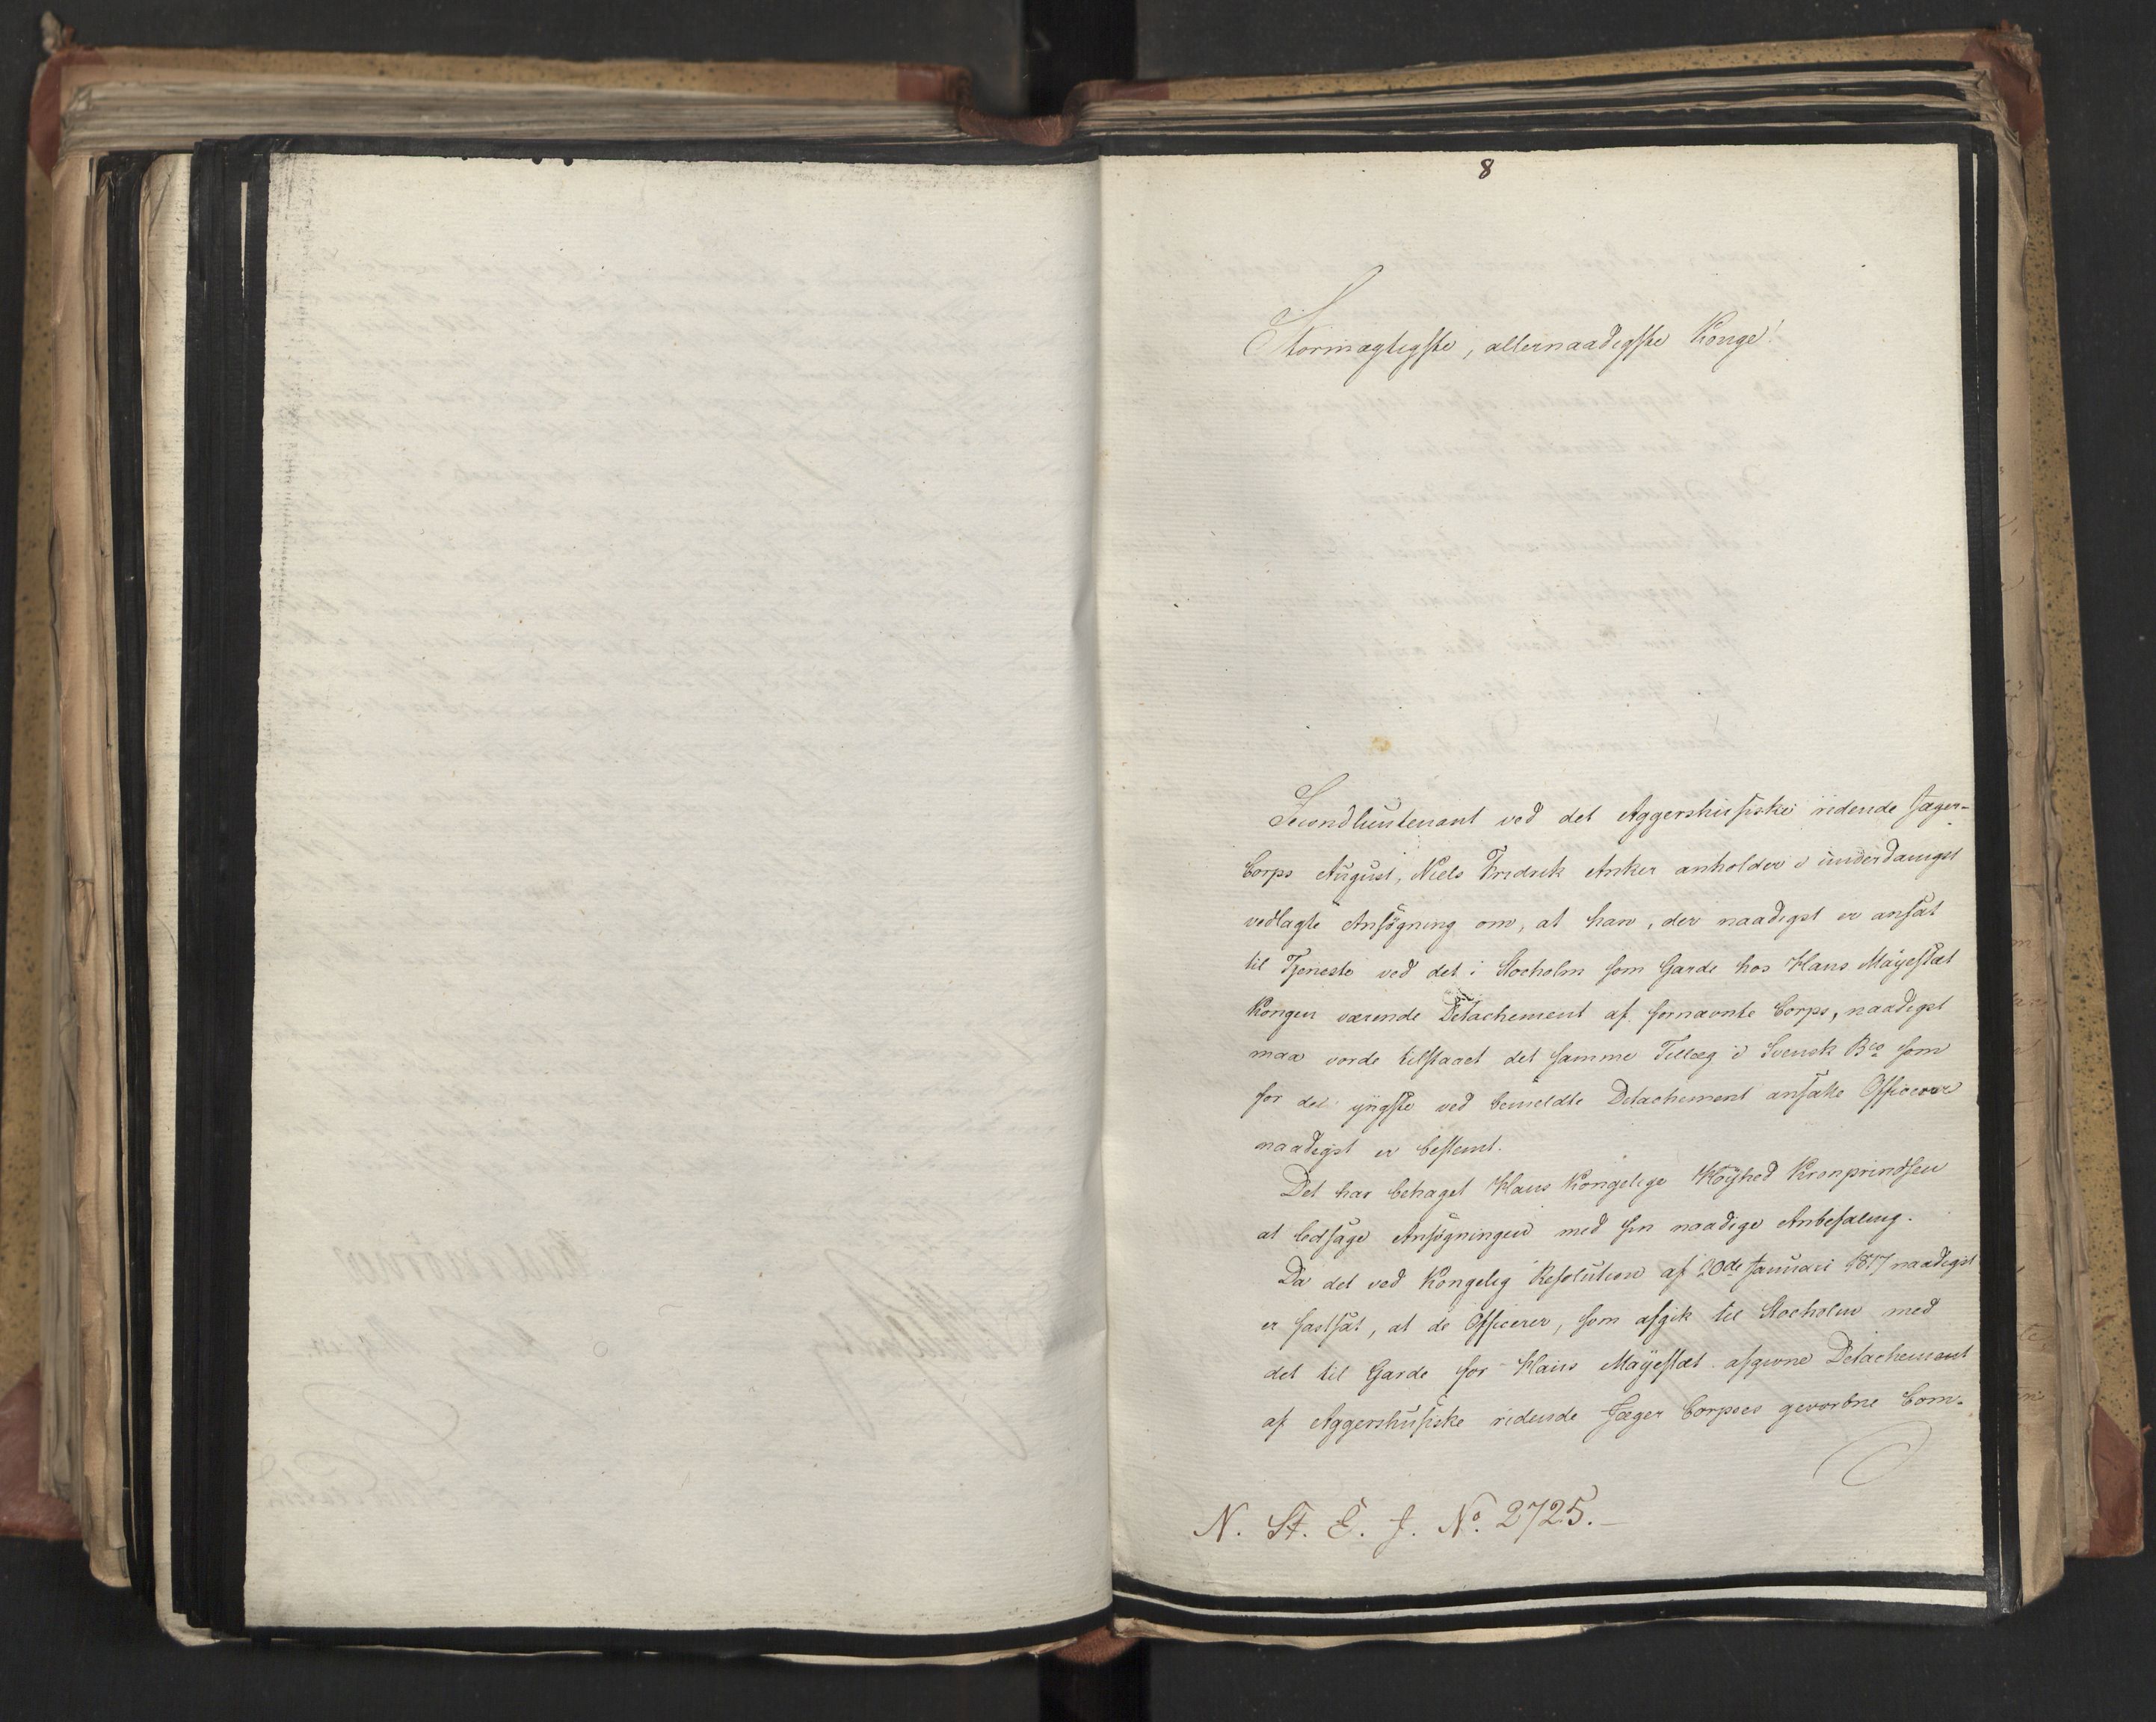 8
Stormægtigste, allernaadigste Konge!
Secondlieutenant ved det Aggershusiske ridende Jæger-
Corps August, Niels Fredrik Anker anholder i underdanigst
vedlagte Ansögning om, at han, der naadigst er ansat
til Tjeneste ved det i Stocholm som Garde hos Hans Mayestæt
Kongen værende Detachement af fornævnte Corps, naadigst
maa vorde tilstaaet det samme Tillæg i Svensk Bco som
for de yngste ved bemeldte Detachement ansatte Officerer
naadigst er bestemt.
Det har behaget Hans Kongelige Höyhed Kronprindsen
at ledsage Ansögningen med sin naadige Anbefaling.
Da det ved Kongelig Resolution af 20de Januari 1817 naadigst
er fastsat, at de Officerer, som afgik til Stocholm med
det til Garde for Hans Mayestæt afgivne Detachement
af Aggershusiske ridende Jæger Corpses gevorbne Com-
N. St. E. J. No. 2725.-